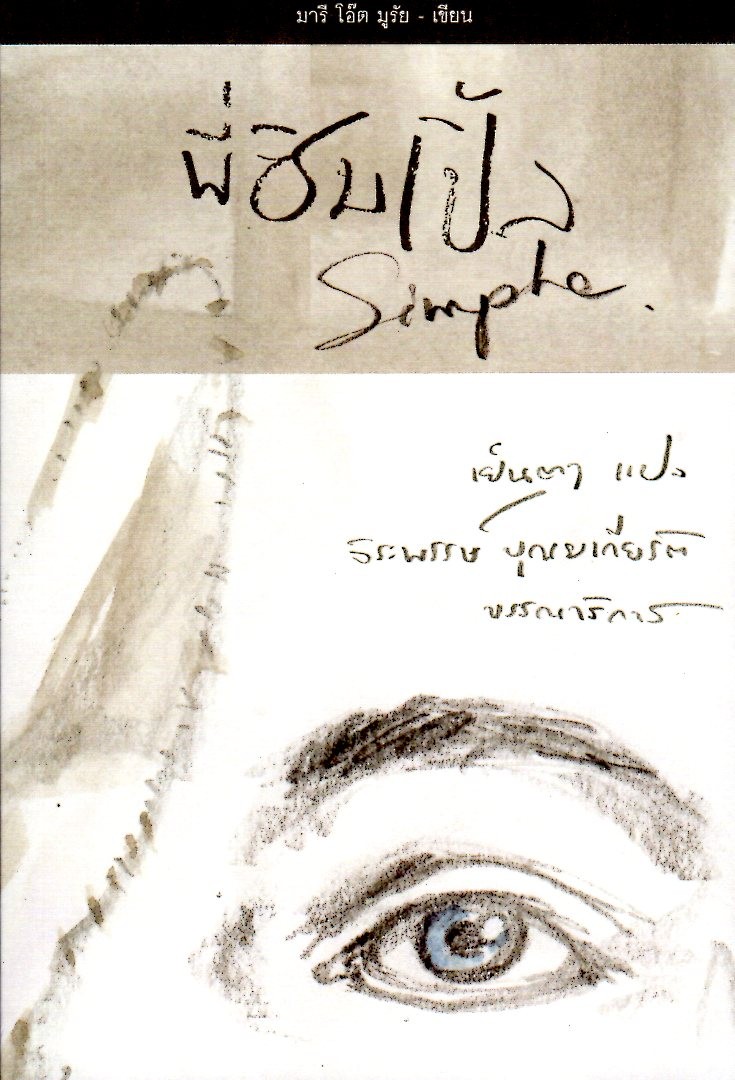 มารี โอ๊ต มูรัย - เขียน
พี่ซิมเปิ้ล
Simple.
เย็นตา แปล
ธีระพรรษ์ บุณยเกียรติ
บรรณาธิการ